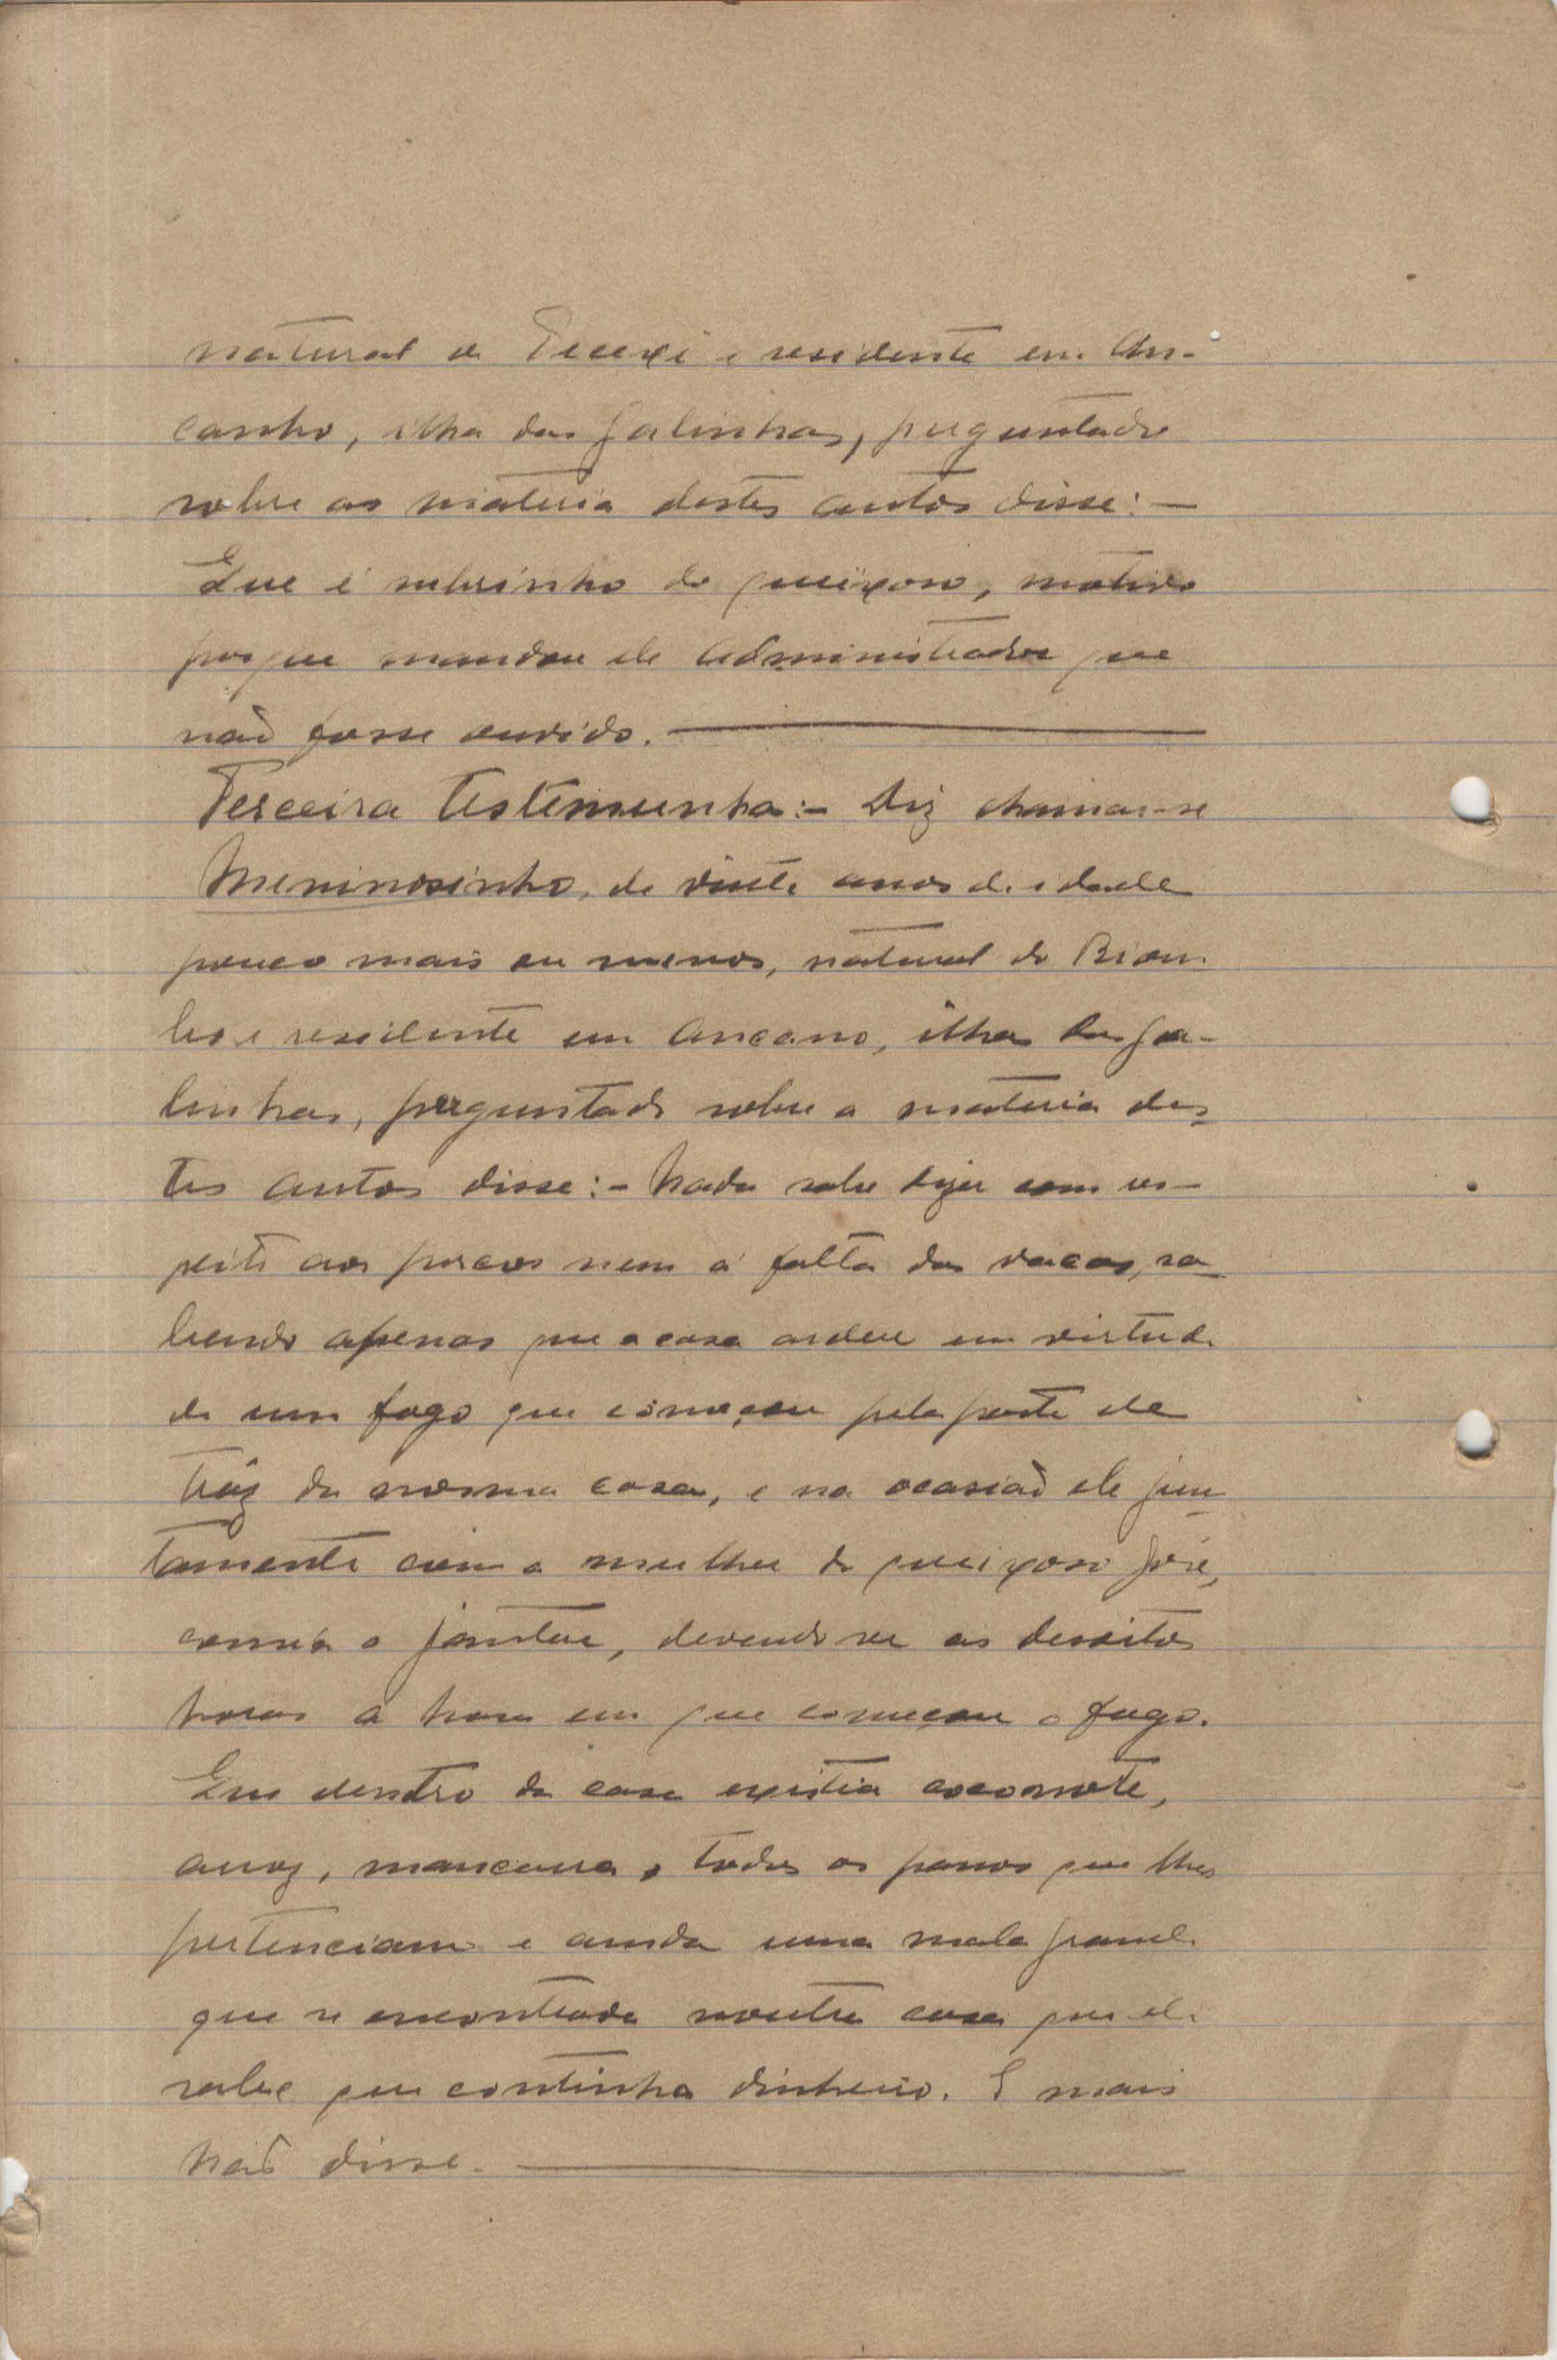 natural de Pecexi e residente em An-
canho, ilha das Galinhas, perguntado
sobre as materia destes autos disse:—
Que é sobrinho do queixoso, motivo
porque mandou ele administrador que
não fosse ouvido.
Terceira testemunha:- Diz chamar-se
Meninosinho, de vinte anos de idade
pouco mais ou menos, natural de Biom-
bo e residente em Ancano, ilha das Ga-
linhas, perguntado sobre a materia des-
tes autos disse:- Nada sabe dizer com res-
peito aos porcos nem á falta das vacas, sa-
bendo apenas que a casa ardeu em virtude
de um fogo que começou pela parte de
traz da mesma casa, e na ocasião ele jun-
tamente com a mulher do queixoso José,
comia o jantar, devendo ser as dezoito
horas a hora em que começou o fogo.
Que dentro da casa existia coconote,
arroz, mancarra, todos os panos que lhes
pertenciam e ainda uma mala grande
que se encontrada noutra casa que ele
sabe que continha dinheiro. E mais
não disse.